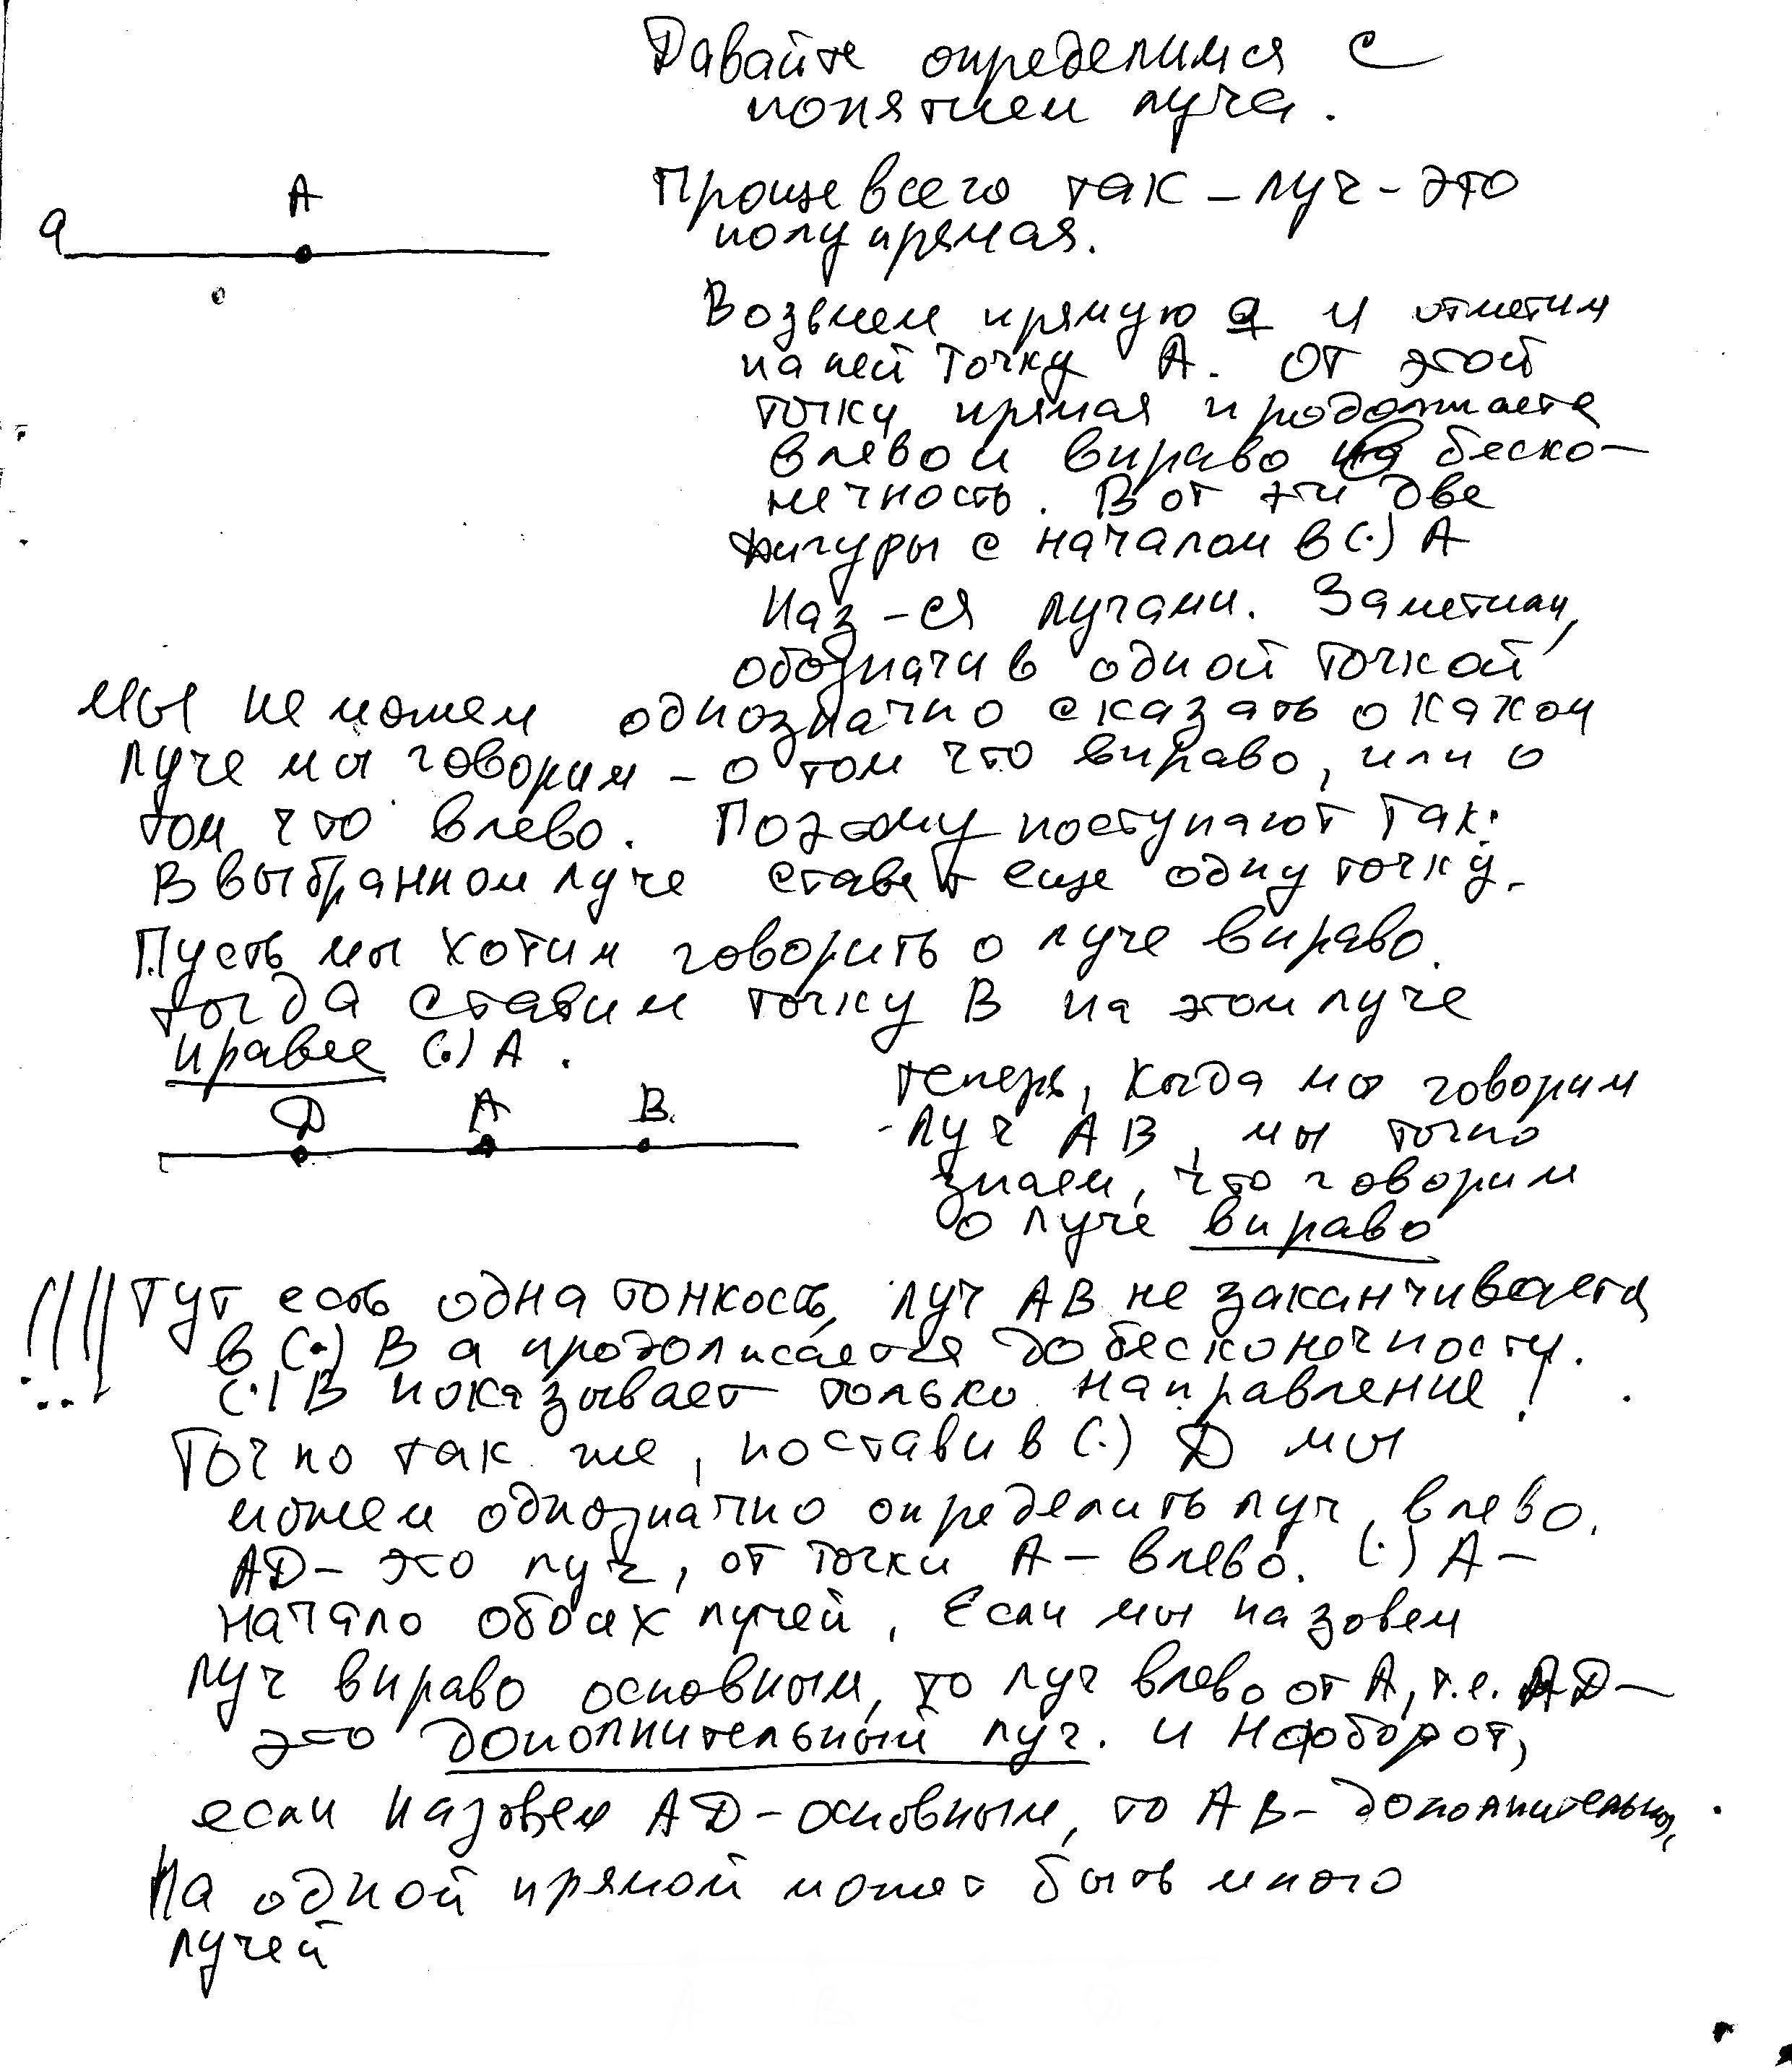 Давайте определимся с
понятием луча.
Проще всего так – луч – это
полупрямая.
A
a
Возьмем прямую a и отметим
на ней точку A. От этой
точки прямая продолжается
влево и вправо на беско-
нечность. Вот эти две
фигуры с началом в (·) A
наз-ся лучами. Заметим,
обозначив одной точкой,
мы не можем однозначно сказать о каком
луче мы говорим – о том что вправо, или о
том что влево. Поэтому поступают так:
В выбранном луче ставят еще одну точку.
Пусть мы хотим говорить о луче вправо.
тогда ставим точку B на этом луче
правее (·) A.
D A B
теперь, когда мы говорим
луч AB, мы точно
знаем, что говорим
о луче вправо
!!! Тут есть одна тонкость, луч AB не заканчивается
в (·) B а продолжается до бесконечности.
(·) B показывает только направление!
Точно так же, поставив (·) D мы
можем однозначно определить луч влево.
AD – это луч, от точки A – влево. (·) A –
начало обоих лучей. Если мы назовем
луч вправо основным, то луч влево от A, т.е. AD –
это дополнительный луч. и наоборот,
если назовем AD – основным, то AB – дополнительный.
На одной прямой может быть много
лучей